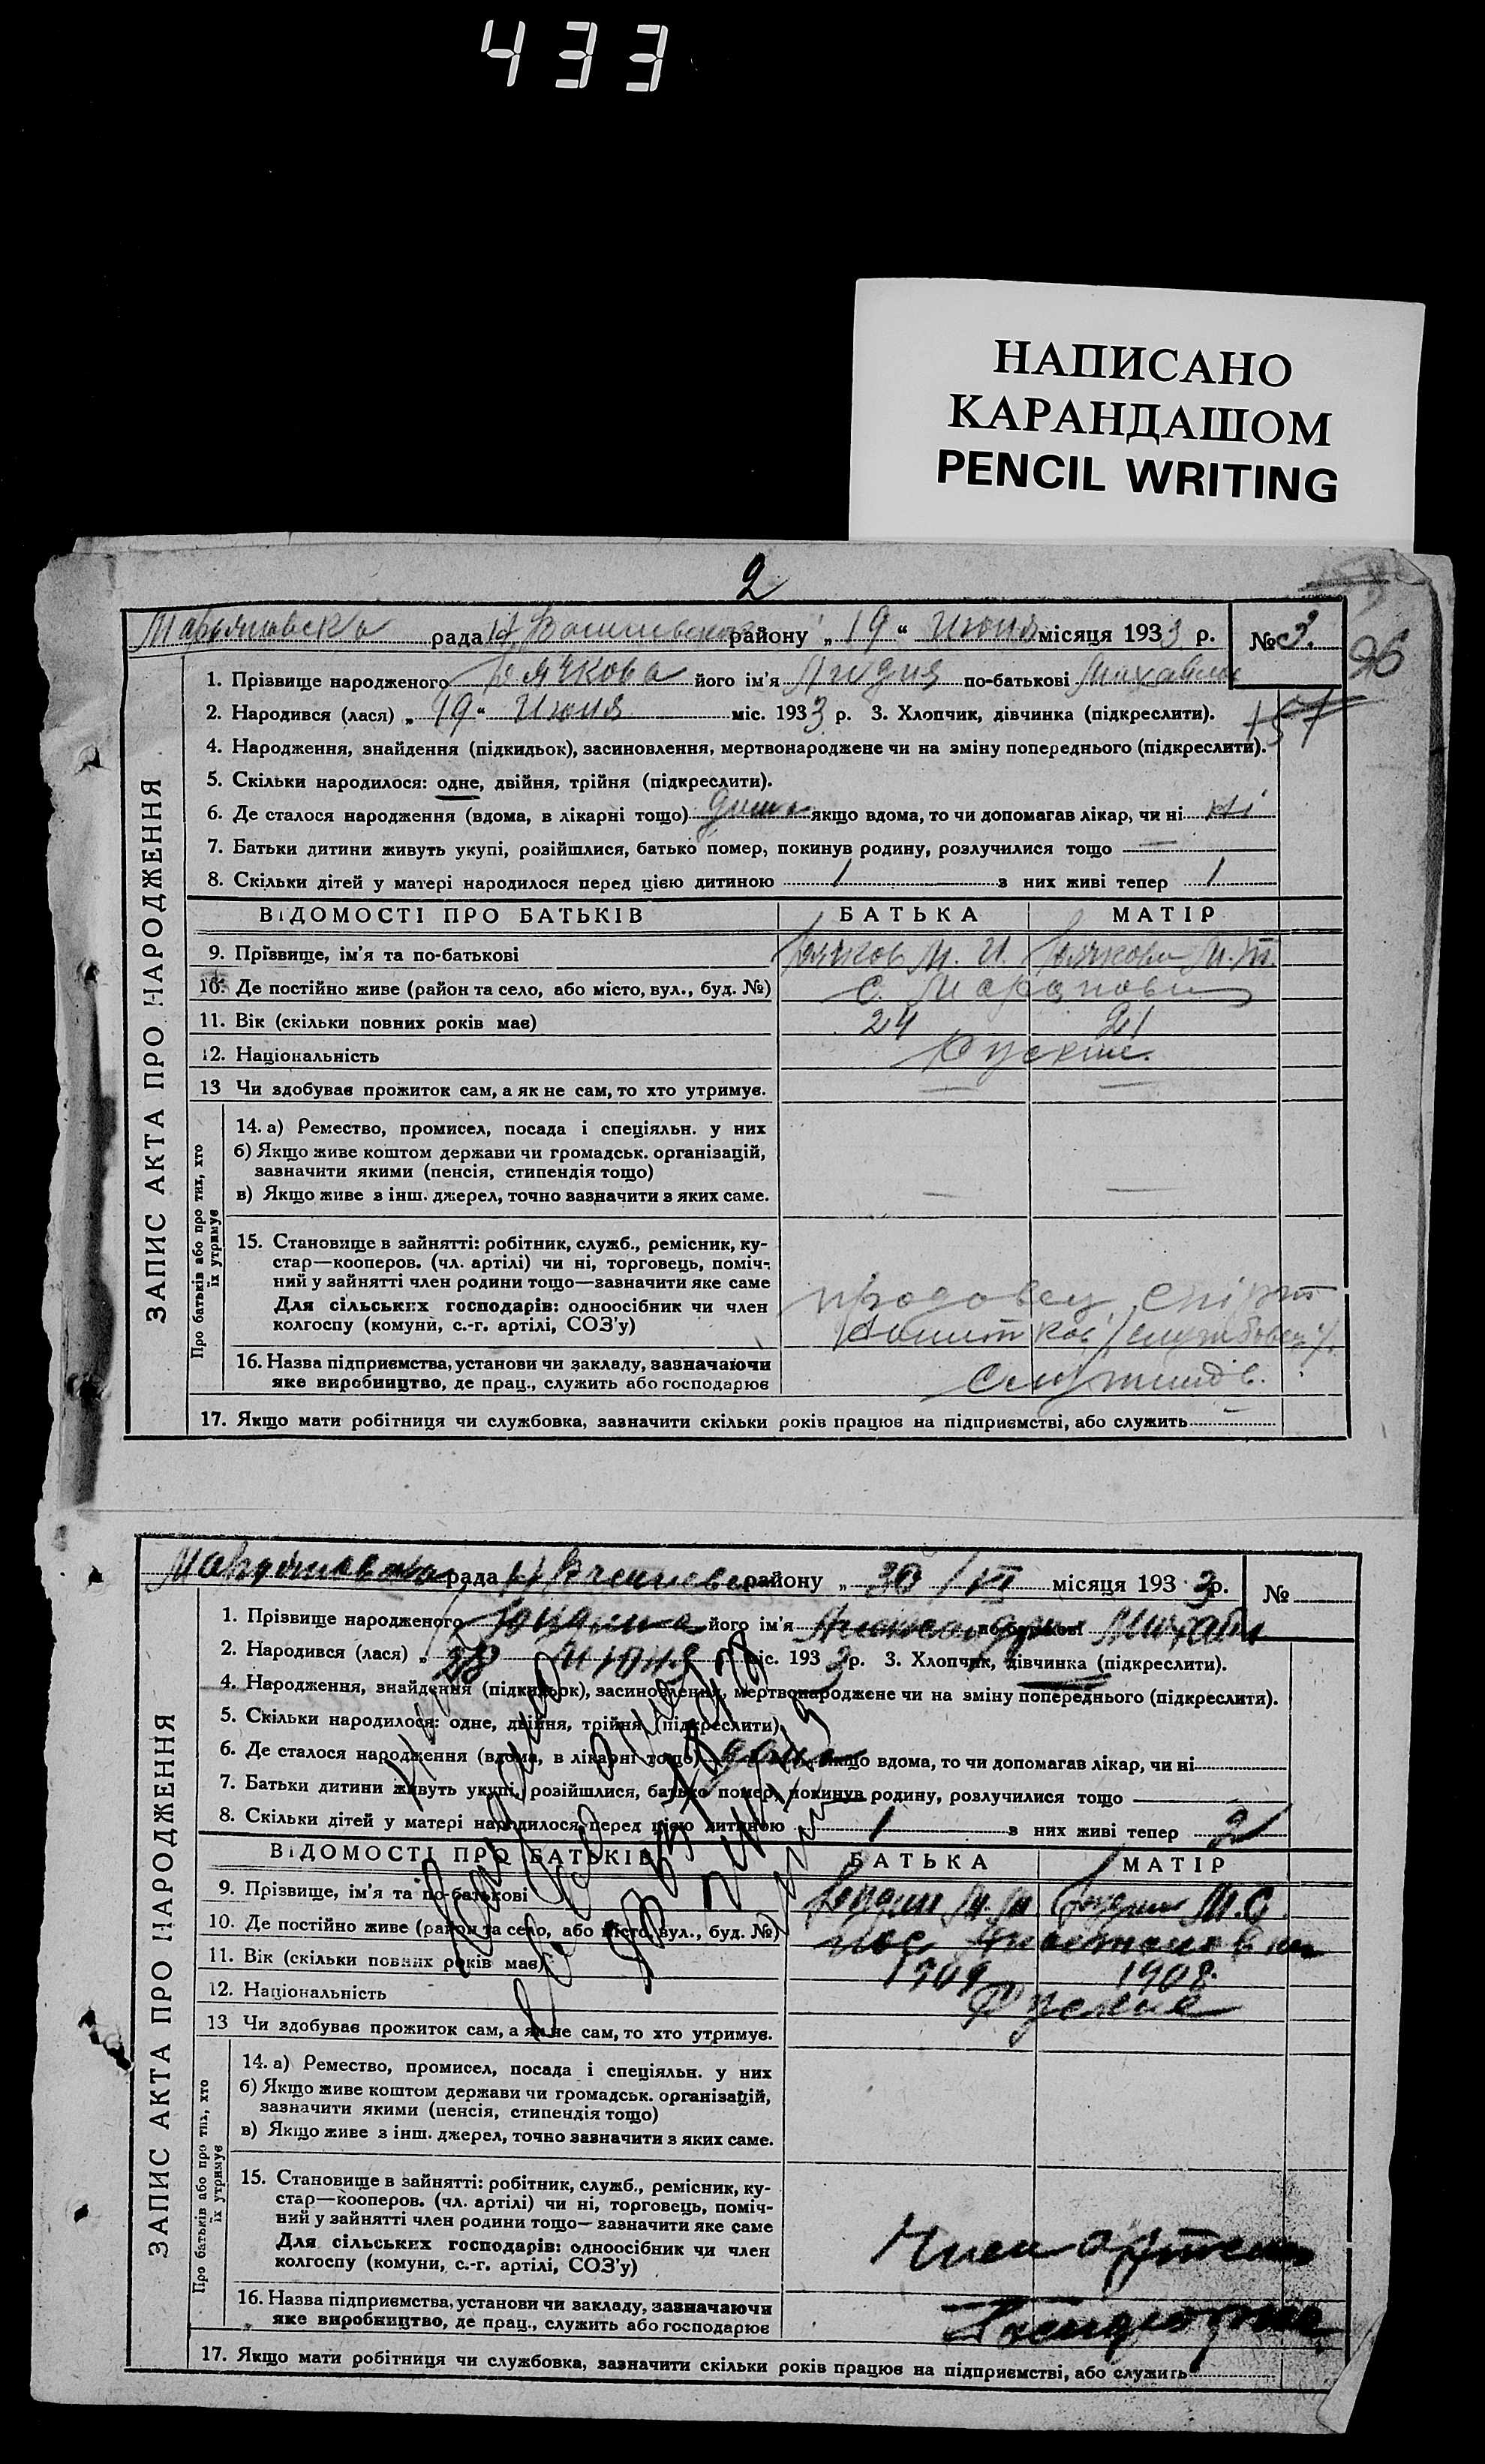 433
НАПИСАНО
КАРАНДАШОМ
PENCIL WRITING
2
ЗАПИС АКТА ПРО НАРОДЖЕННЯ
рада району „ 19 “ Июня місяця 1933 р. № 3.
96
1. Прізвище народженого його ім'я Лидия по-батькові
2. Народився (лася) „ 19 “ Июня міс. 1933 р. 3. Хлопчик, дівчинка (підкреслити).
157
4. Народження, знайдення (підкидьок), засиновлення, мертвонароджене чи на зміну попереднього (підкреслити).
5. Скільки народилося: одне, двійня, трійня (підкреслити).
6. Де сталося народження (вдома, в лікарні тощо) дома якщо вдома, то чи допомагав лікар, чи ні ні
7. Батьки дитини живуть укупі, розійшлися, батько помер, покинув родину, розлучилися тощо —
8. Скільки дітей у матері народилося перед цією дитиною 1 з них живі тепер 1
ВІДОМОСТІ ПРО БАТЬКІВ БАТЬКА МАТІР
9. Прізвище, ім'я та по-батькові М. И.
10. Де постійно живе (район та село, або місто, вул., буд. №) с.
11. Вік (скільки повних років має) 24 21
12. Національність Руские.
13 Чи здобуває прожиток сам, а як не сам, то хто утримує. — —
Про батьків або про тих, хто їх утримує
14. а) Ремество, промисел, посада і спеціяльн. у них
б) Якщо живе коштом держави чи громадськ. організацій,
зазначити якими (пенсія, стипендія тощо)
в) Якщо живе з інш. джерел, точно зазначити з яких саме. — —
15. Становище в зайнятті: робітник, служб., ремісник, ку-
стар—кооперов. (чл. артілі) чи ні, торговець, поміч-
ний у зайнятті член родини тощо—зазначити яке саме
Для сільських господарів: одноосібник чи член
колгоспу (комуни, с.-г. артілі, СОЗ'у)
16. Назва підприємства, установи чи закладу, зазначаючи
яке виробництво, де прац., служить або господарює
17. Якщо мати робітниця чи службовка, зазначити скільки років працює на підприємстві, або служить —
ЗАПИС АКТА ПРО НАРОДЖЕННЯ
рада району „ 30 / VI місяця 1933 р. №
1. Прізвище народженого його ім'я по-батькові
2. Народився (лася) „ 28 Июня міс. 1933 р. 3. Хлопчик, дівчинка (підкреслити).
4. Народження, знайдення (підкидьок), засиновлення, мертвонароджене чи на зміну попереднього (підкреслити).
5. Скільки народилося: одне, двійня, трійня (підкреслити).
6. Де сталося народження (вдома, в лікарні тощо) дома якщо вдома, то чи допомагав лікар, чи ні
7. Батьки дитини живуть укупі, розійшлися, батько помер, покинув родину, розлучилися тощо
8. Скільки дітей у матері народилося перед цією дитиною 1 з них живі тепер 2
ВІДОМОСТІ ПРО БАТЬКІВ БАТЬКА МАТІР
9. Прізвище, ім'я та по-батькові М. С.
10. Де постійно живе (район та село, або місто, вул., буд. №)
11. Вік (скільки повних років має) 1909 1908
12. Національність Руские
13 Чи здобуває прожиток сам, а як не сам, то хто утримує.
Про батьків або про тих, хто їх утримує
14. а) Ремество, промисел, посада і спеціяльн. у них
б) Якщо живе коштом держави чи громадськ. організацій,
зазначити якими (пенсія, стипендія тощо)
в) Якщо живе з інш. джерел, точно зазначити з яких саме.
15. Становище в зайнятті: робітник, служб., ремісник, ку-
стар—кооперов. (чл. артілі) чи ні, торговець, поміч-
ний у зайнятті член родини тощо—зазначити яке саме
Для сільських господарів: одноосібник чи член
колгоспу (комуни, с.-г. артілі, СОЗ'у)
Член артели
16. Назва підприємства, установи чи закладу, зазначаючи
яке виробництво, де прац., служить або господарює
17. Якщо мати робітниця чи службовка, зазначити скільки років працює на підприємстві, або служить